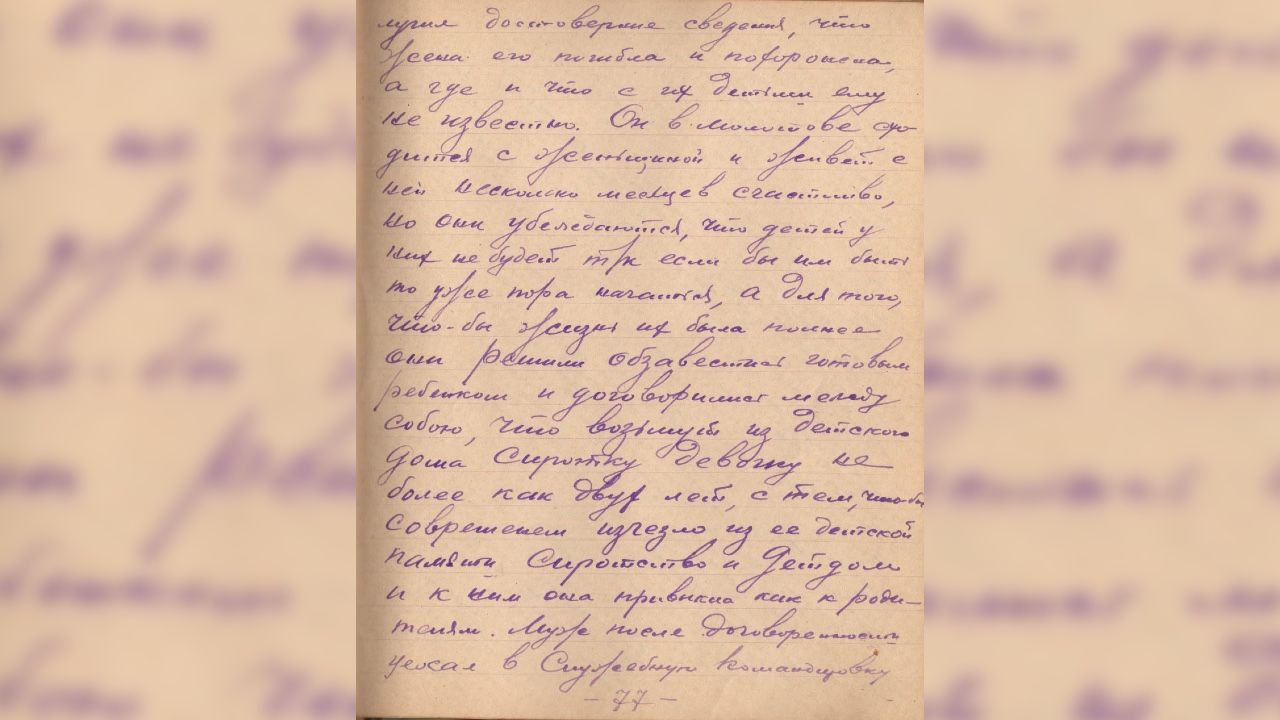 лучил достоверные сведения, что
жена его погибла и похоронена,
а где и что с их детьми ему
не известно. Он в Молотове схо-
дится с женщиной и живет с
ней несколько месяцев счастливо,
но они убеждаются, что детей у
них не будет т/к если бы им быть
то уже пора начаться, а для того,
что-бы жизнь их была полнее
они решили обзавестись готовым
ребенком и договорились между
собою, что возьмут из детского
дома сиротку девочку не
более как двух лет, с тем, что-бы
современем изчезло из ее детской
памяти сиротство и детдом
и к ним она привыкла как к роди-
телям. Муж после договоренности
уехал в служебную командировку
- 77 -